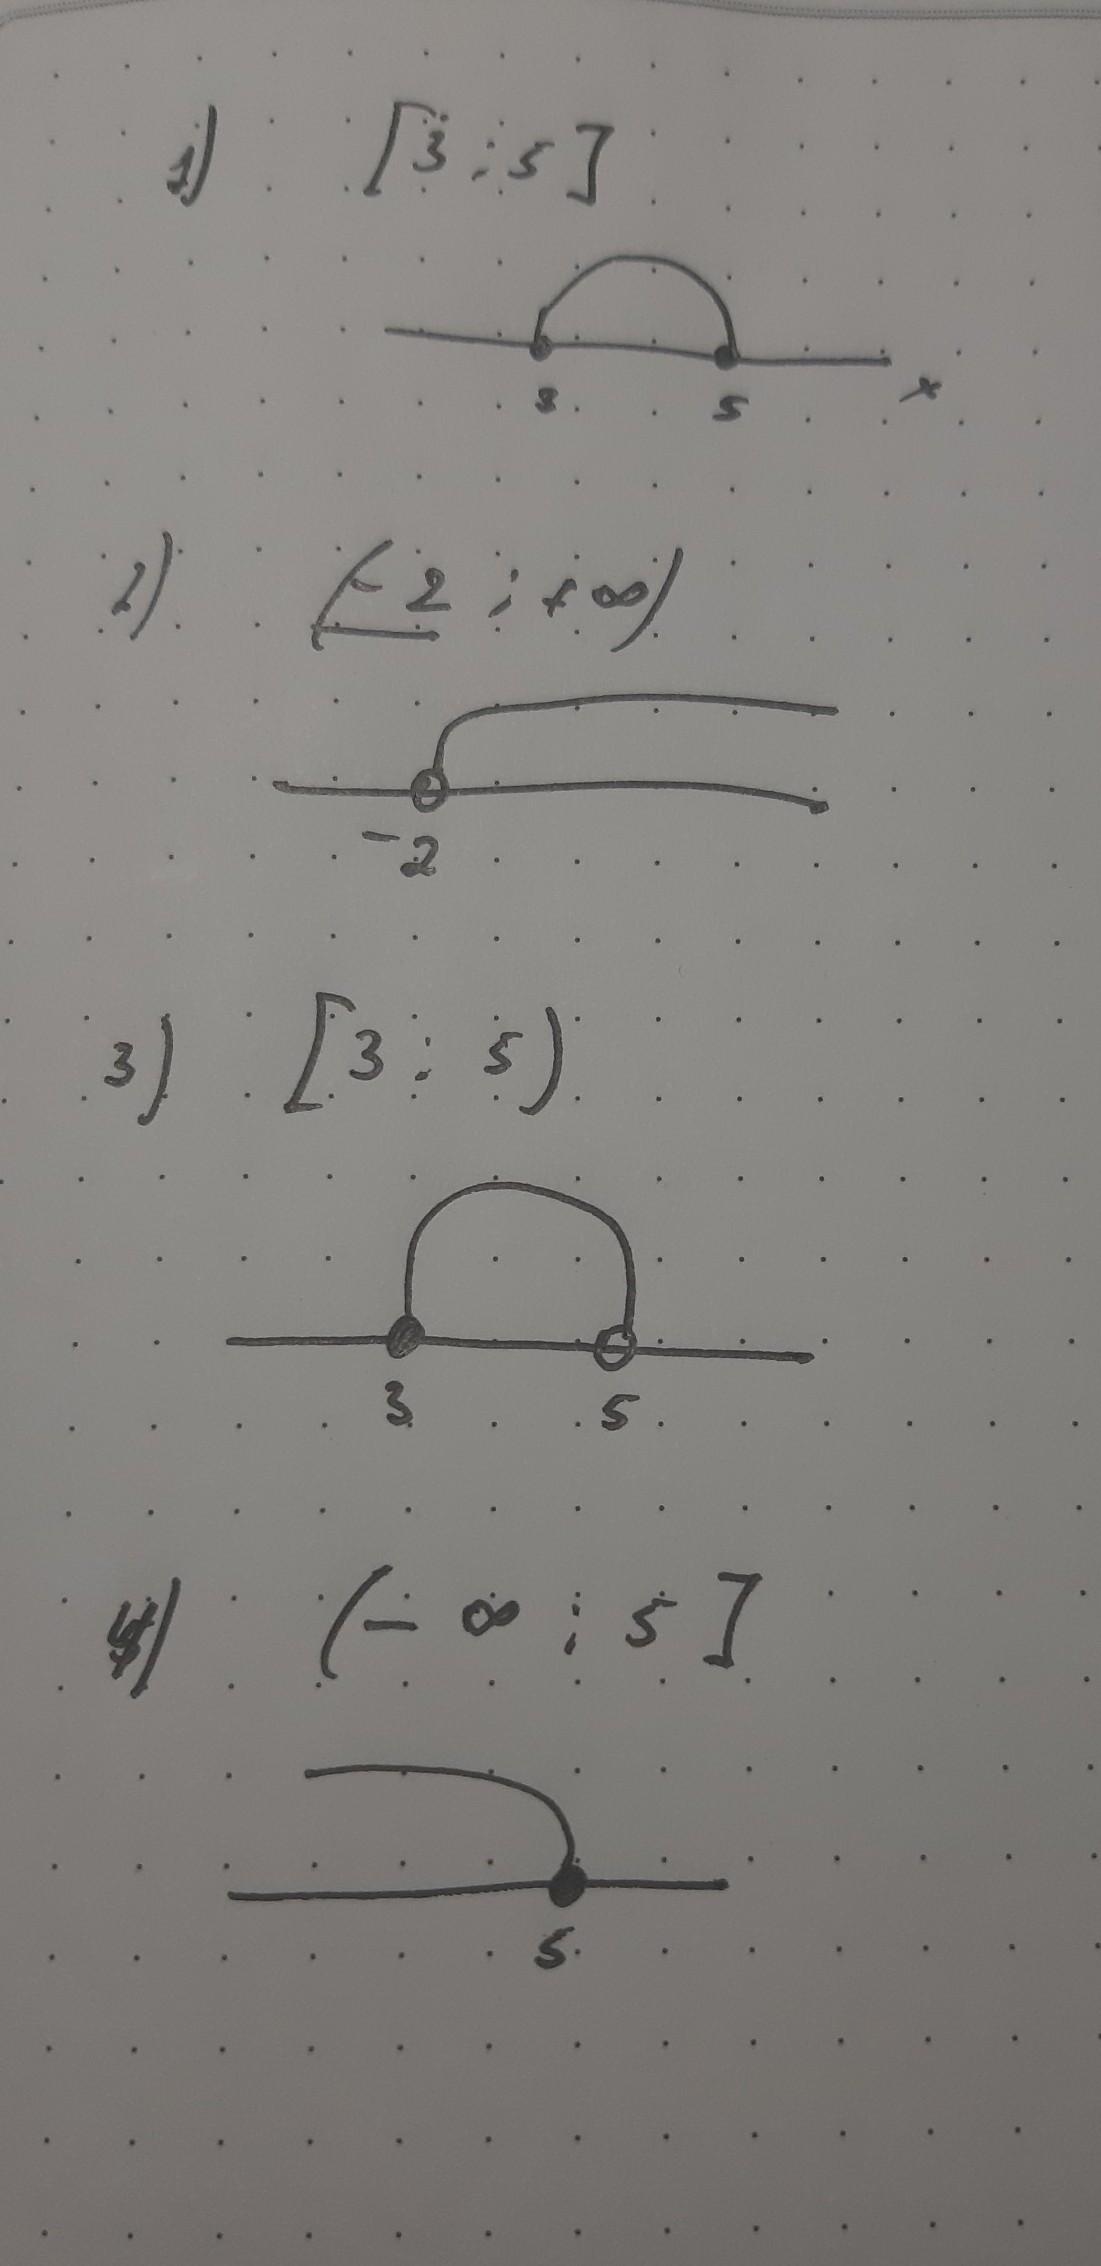 1) [3 ; 5]
3 5 x
2) (-2 ; +∞)
-2
3) [3 ; 5)
3 5
4) (- ∞ ; 5]
5